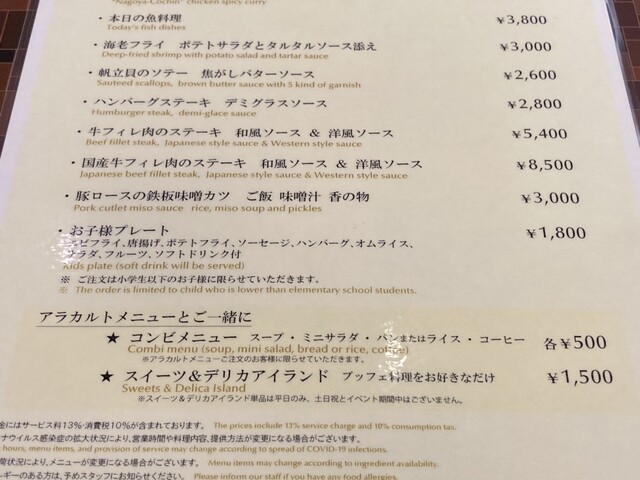 "Nagoya-Cochin" chicken spicy curry
・本日の魚料理 ¥3,800
Today's fish dishes
・海老フライ ポテトサラダとタルタルソース添え ¥3,000
Deep-fried shrimp with potato salad and tartar sauce
・帆立貝のソテー 焦がしバターソース ¥2,600
Sauteed scallops, brown butter sauce with 5 kind of garnish
・ハンバーグステーキ デミグラスソース ¥2,800
Humburger steak, demi-glace sauce
・牛フィレ肉のステーキ 和風ソース & 洋風ソース ¥5,400
Beef fillet steak, Japanese style sauce & Western style sauce
・国産牛フィレ肉のステーキ 和風ソース & 洋風ソース ¥8,500
Japanese beef fillet steak, Japanese style sauce & Western style sauce
・豚ロースの鉄板味噌カツ ご飯 味噌汁 香の物 ¥3,000
Pork cutlet miso sauce rice, miso soup and pickles
・お子様プレート ¥1,800
エビフライ、唐揚げ、ポテトフライ、ソーセージ、ハンバーグ、オムライス、
サラダ、フルーツ、ソフトドリンク付
Kids plate (soft drink will be served)
※ ご注文は小学生以下のお子様に限らせていただきます。
※ The order is limited to child who is lower than elementary school students.
アラカルトメニューとご一緒に
★ コンビメニュー スープ・ミニサラダ・パンまたはライス・コーヒー 各¥500
Combi menu (soup, mini salad, bread or rice, coffee)
※アラカルトメニューご注文のお客様に限らせていただきます。
★ スイーツ&デリカアイランド ブッフェ料理をお好きなだけ ¥1,500
Sweets & Delica Island
※スイーツ&デリカアイランド単品は平日のみ、土日祝とイベント期間中はございません。
金にはサービス料13%・消費税10%が含まれております。 The prices include 13% service charge and 10% consumption tax.
ナウイルス感染症の拡大状況により、営業時間や料理内容、提供方法が変更になる場合がございます。
hours, menu items, and provision of service may change according to spread of COVID-19 infections.
荷状況により、メニューが変更になる場合がございます。 Menu items may change according to ingredient availability.
ルギーのある方は、予めスタッフにお知らせください。 Please inform our staff if you have any food allergies.